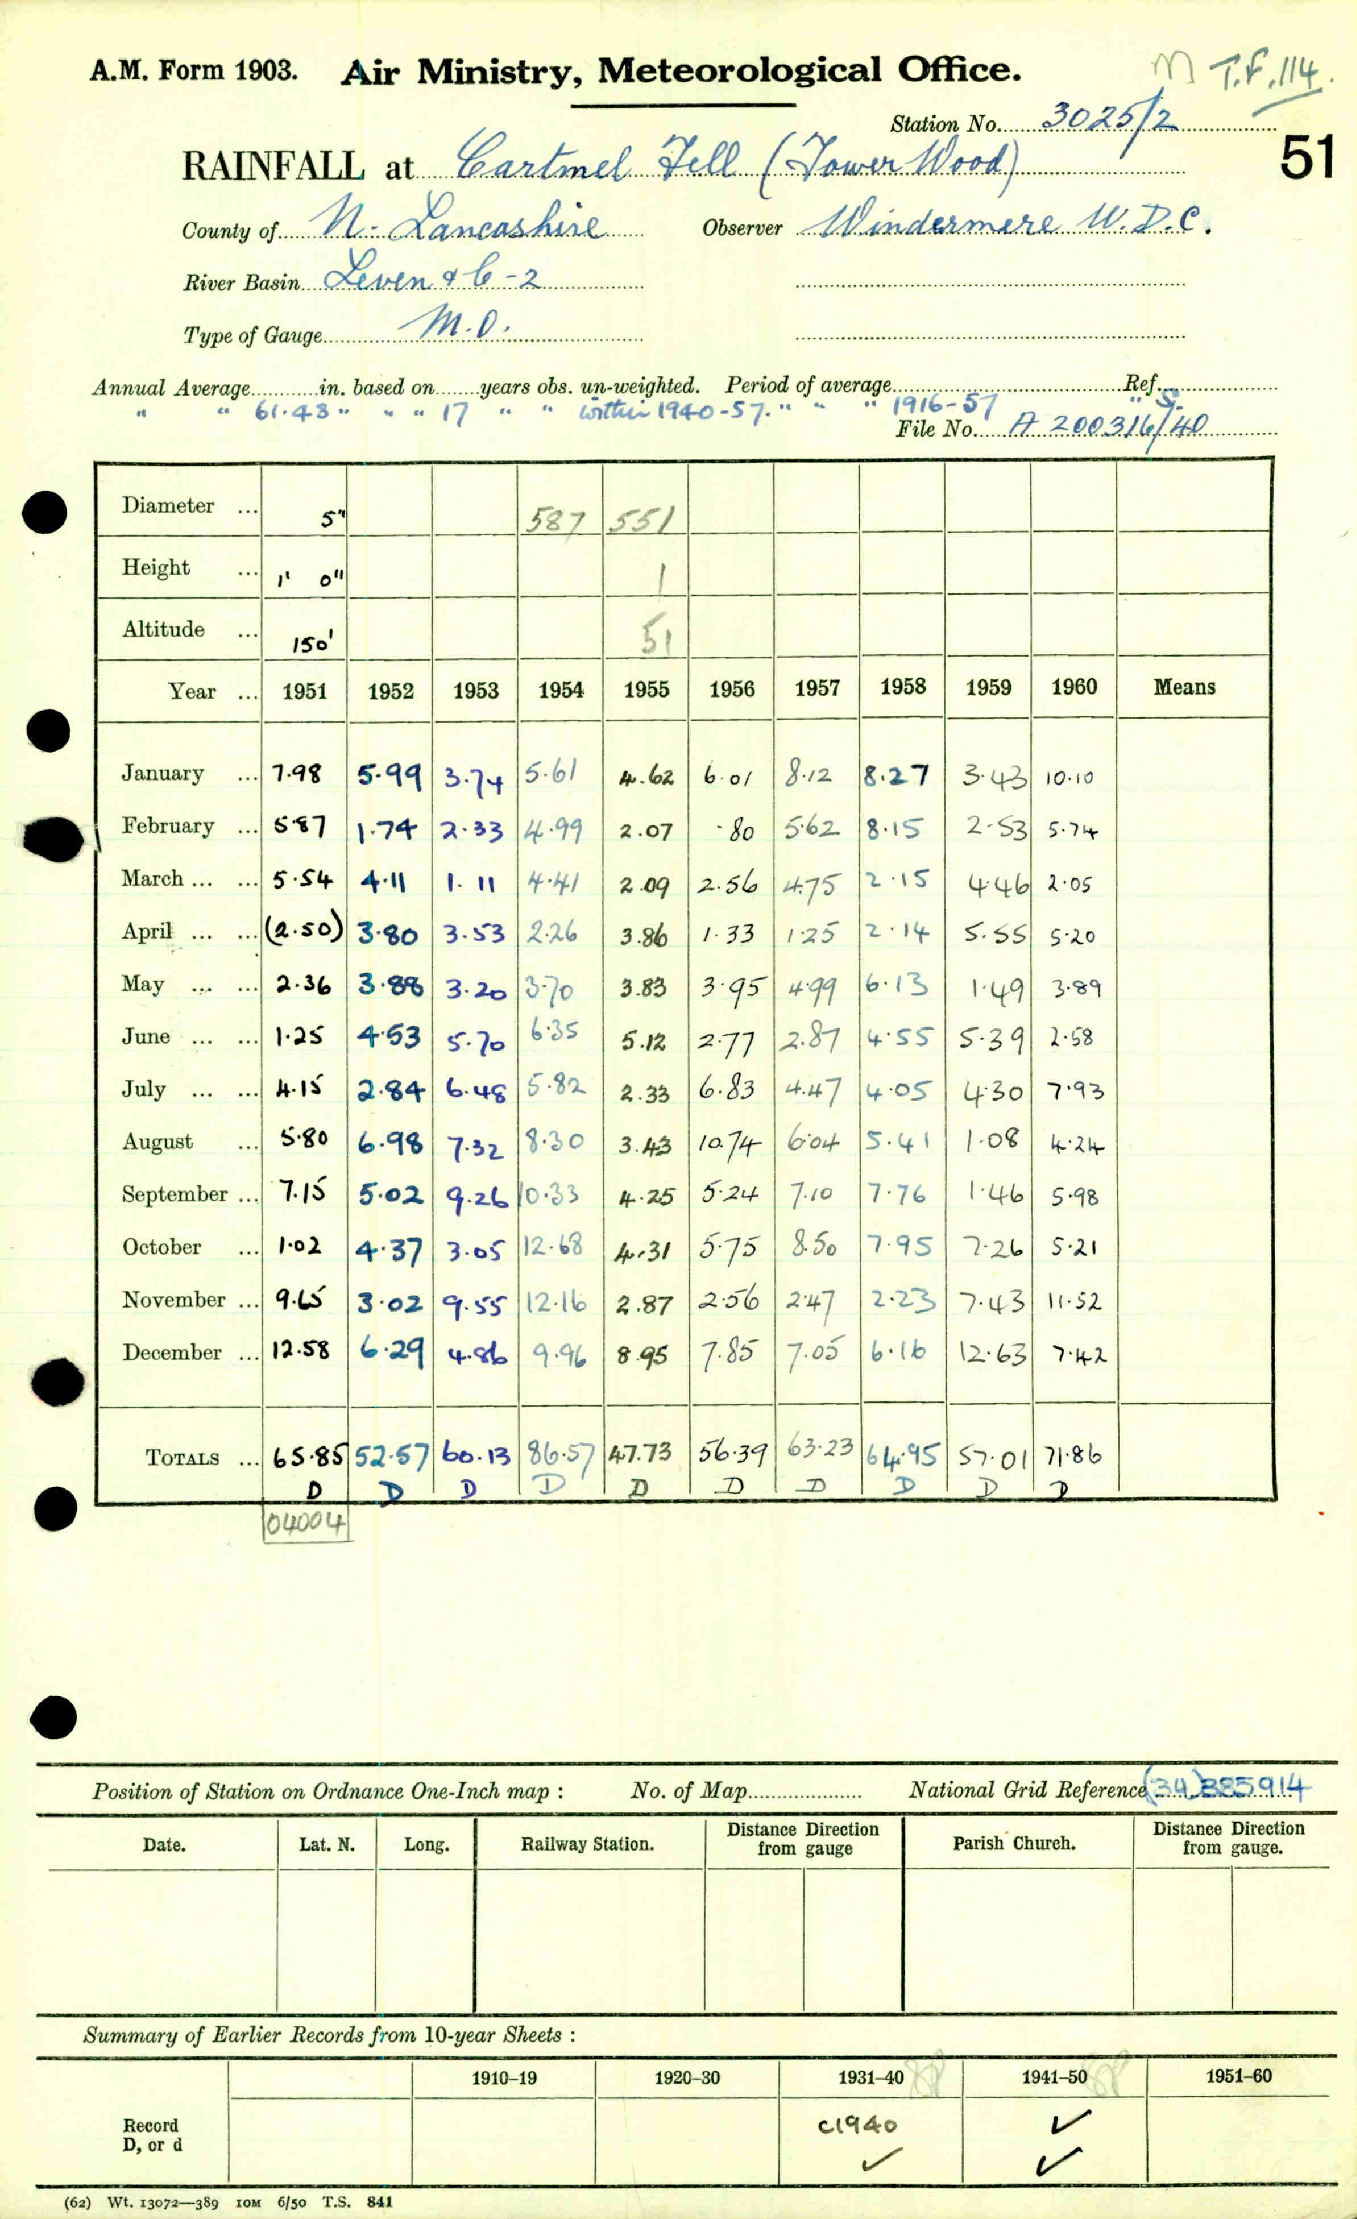 M T.F.114.
A.M. Form 1903. Air Ministry, Meteorological Office.
Station No. 3025/2
51
RAINFALL at Cartmel Fell (Tower Wood)
County of N. Lancashire Observer Windermere U.D.C.
River Basin Leven & C-2
Type of Gauge M.O.
Annual Average in. based on years obs. un-weighted. Period of average Ref.
" " 61.43 " " " 17 " " within 1940-57. " " " 1916-57 " S.
File No. A 200316/40
Diameter ... 5" 587 551
Height ... 1' 0" 1
Altitude ... 150' 51
Year ... 1951 1952 1953 1954 1955 1956 1957 1958 1959 1960 Means
January ... 7.98 5.99 3.74 5.61 4.62 6.01 8.12 8.27 3.43 10.10
February ... 5.87 1.74 2.33 4.99 2.07 .80 5.62 8.15 2.53 5.74
March ... ... 5.54 4.11 1.11 4.41 2.09 2.56 4.75 2.15 4.46 2.05
April ... ... (2.50) 3.80 3.53 2.26 3.86 1.33 1.25 2.14 5.55 5.20
May ... ... 2.36 3.88 3.20 3.70 3.83 3.95 4.99 6.13 1.49 3.89
June ... ... 1.25 4.53 5.70 6.35 5.12 2.77 2.87 4.55 5.39 2.58
July ... ... 4.15 2.84 6.48 5.82 2.33 6.83 4.47 4.05 4.30 7.93
August ... 5.80 6.98 7.32 8.30 3.43 10.74 6.04 5.41 1.08 4.24
September ... 7.15 5.02 9.26 10.33 4.25 5.24 7.10 7.76 1.46 5.98
October ... 1.02 4.37 3.05 12.68 4.31 5.75 8.50 7.95 7.26 5.21
November ... 9.65 3.02 9.55 12.16 2.87 2.56 2.47 2.23 7.43 11.52
December ... 12.58 6.29 4.86 9.96 8.95 7.85 7.05 6.16 12.63 7.42
TOTALS ... 65.85 52.57 60.13 86.57 47.73 56.39 63.23 64.95 57.01 71.86
D D D D D D D D D D
04004
Position of Station on Ordnance One-Inch map : No. of Map National Grid Reference (34)385914
Date. Lat. N. Long. Railway Station. Distance from gauge Direction Parish Church. Distance from gauge. Direction
Summary of Earlier Records from 10-year Sheets :
1910–19 1920–30 1931–40 1941–50 1951–60
Record c1940 ✓
D, or d ✓ ✓
(62) Wt. 13072—389 10M 6/50 T.S. 841